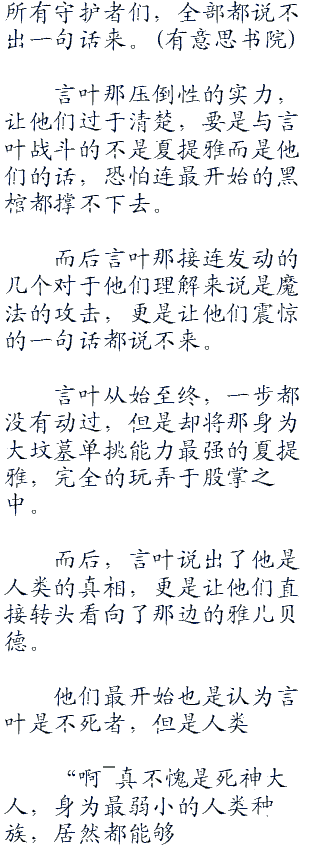 所有守护者们，全部都说不
出一句话来。(有意思书院)
言叶那压倒性的实力，
让他们过于清楚，要是与言
叶战斗的不是夏提雅而是他
们的话，恐怕连最开始的黑
棺都撑不下去。
而后言叶那接连发动的
几个对于他们理解来说是魔
法的攻击，更是让他们震惊
的一句话都说不来。
言叶从始至终，一步都
没有动过，但是却将那身为
大坟墓单挑能力最强的夏提
雅，完全的玩弄于股掌之
中。
而后，言叶说出了他是
人类的真相，更是让他们直
接转头看向了那边的雅儿贝
德。
他们最开始也是认为言
叶是不死者，但是人类
“啊¯真不愧是死神大
人，身为最弱小的人类种
族，居然都能够